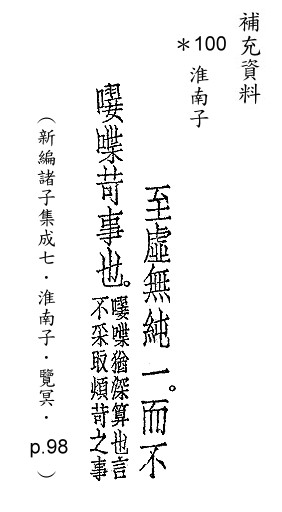 補充資料
＊100
淮南子
至虛無純一。而不
嚶喋苛事也。嚶喋猶深算也言
不采取煩苛之事
（新編諸子集成七．淮南子．覽冥．
p.98）